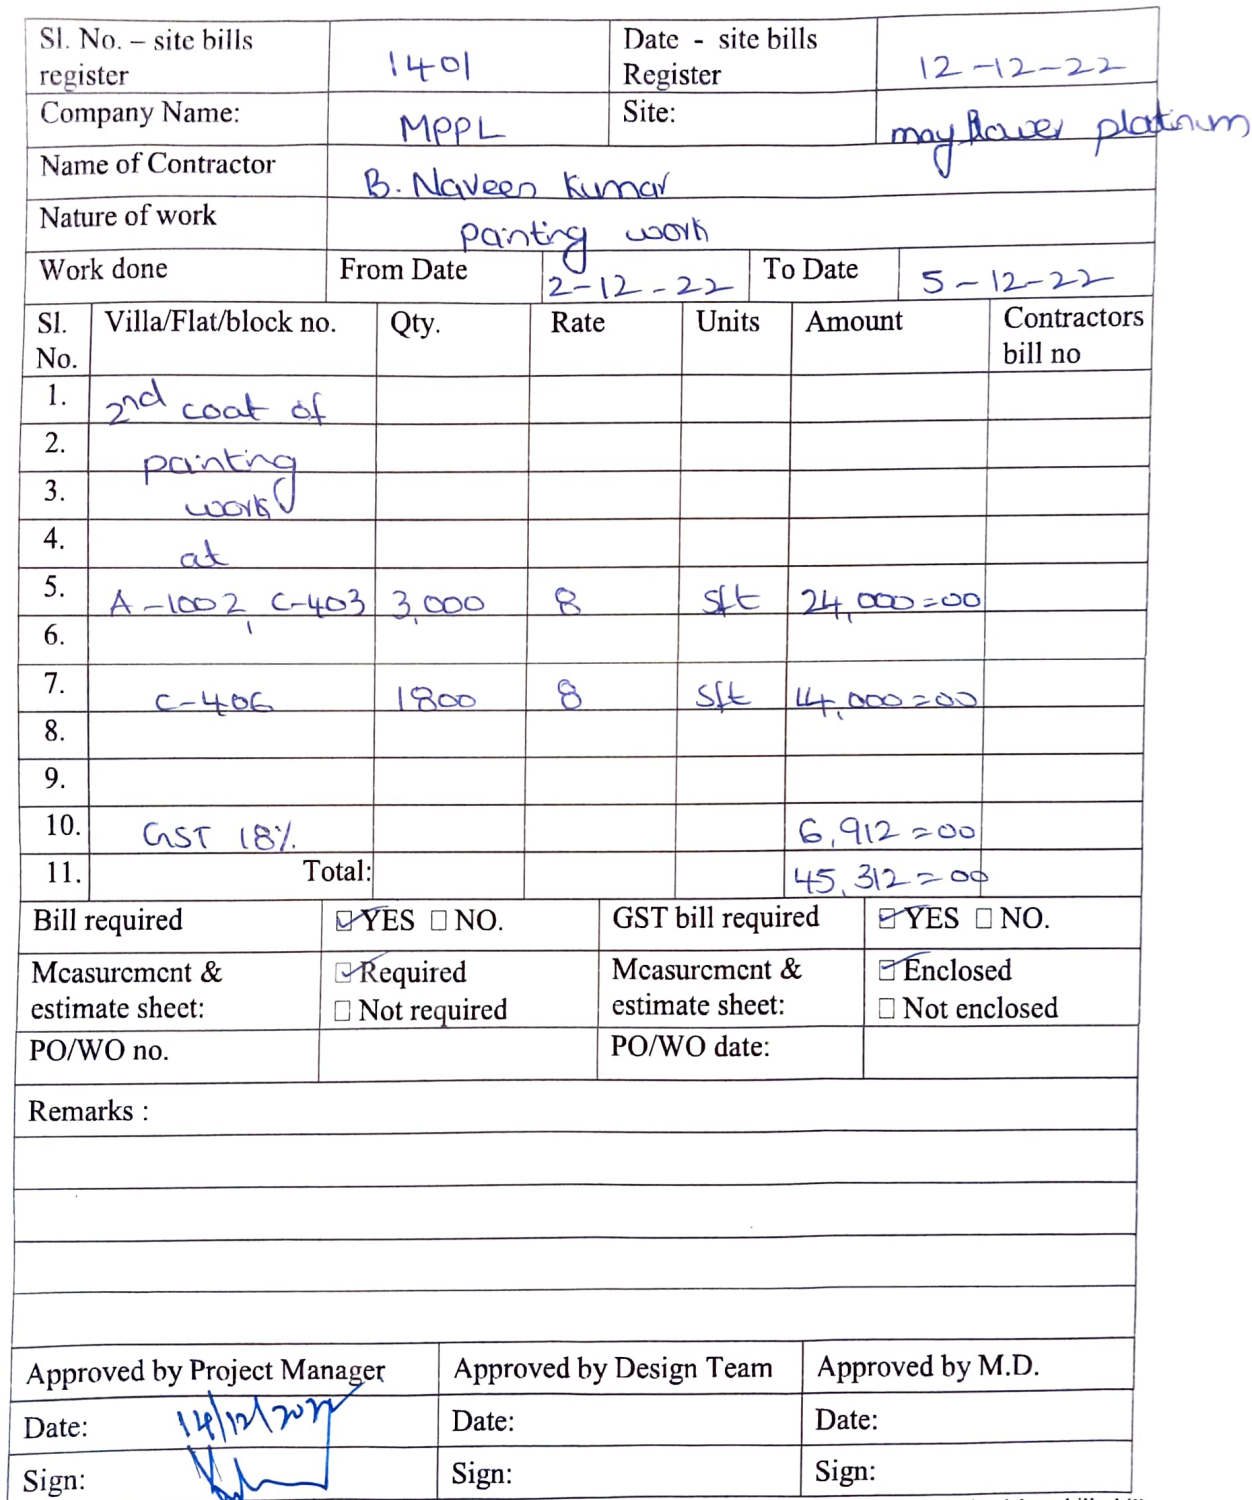 Sl. No. – site bills register 1401 Date - site bills Register 12-12-22
Company Name: MPPL Site: mayflower platinum
Name of Contractor B. Naveen Kumar
Nature of work painting work
Work done From Date 2-12-22 To Date 5-12-22
Sl. No. Villa/Flat/block no. Qty. Rate Units Amount Contractors bill no
1. 2nd coat of
2. painting
3. work
4. at
5. A-1002, C-403 3,000 8 Sft 24,000=00
6.
7. C-406 1800 8 Sft 14,000=00
8.
9.
10. GST 18% 6,912=00
11. Total: 45,312=00
Bill required ☑ YES ☐ NO. GST bill required ☑ YES ☐ NO.
Measurement & estimate sheet: ☑ Required ☐ Not required Measurement & estimate sheet: ☑ Enclosed ☐ Not enclosed
PO/WO no. PO/WO date:
Remarks :
Approved by Project Manager Approved by Design Team Approved by M.D.
Date: 14/12/2022 Date: Date:
Sign: Sign: Sign: